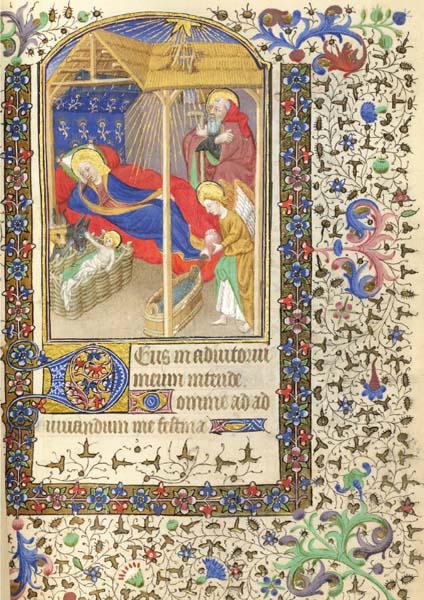 DEus in adiutoriū
meum intende.
Domine ad ad
iuuandum me festina